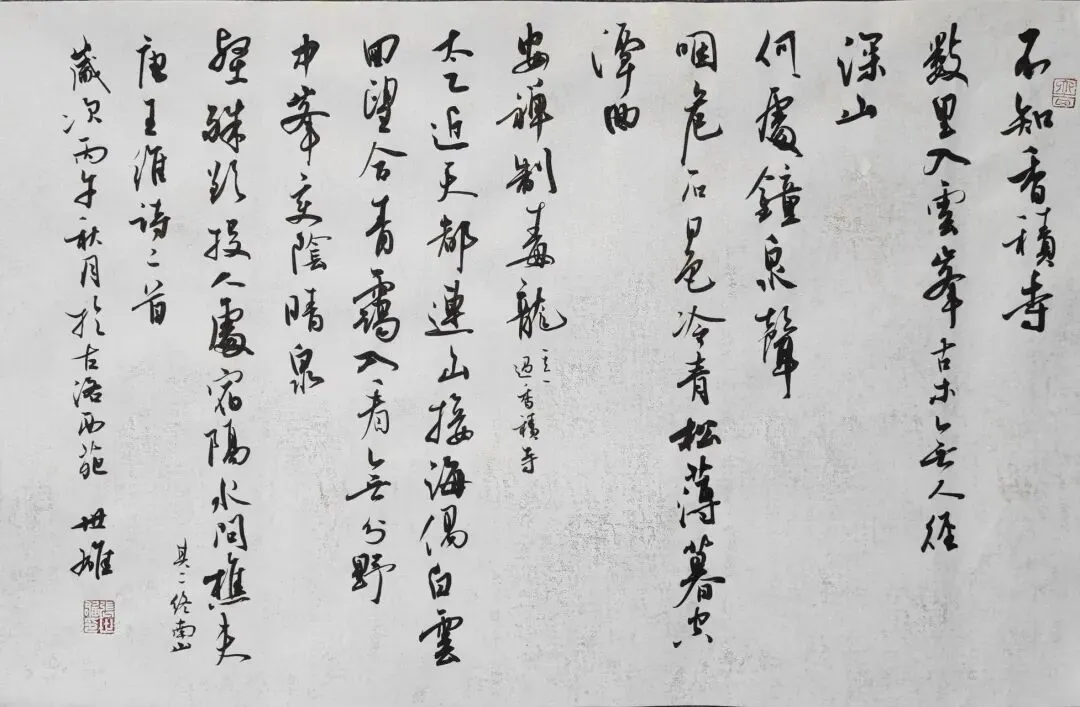 不知香積寺
數里入雲峯古木無人徑
深山
何處鐘泉聲
咽危石日色冷青松薄暮空
潭曲
安禪制毒龍
其一過香積寺
太乙近天都連山接海隅白雲
回望合青靄入看無分野
中峯变陰晴衆
壑殊欲投人處宿隔水問樵夫
其二終南山
唐王維詩二首
歲次丙午秋月於古洛西苑 世雄
張世雄印